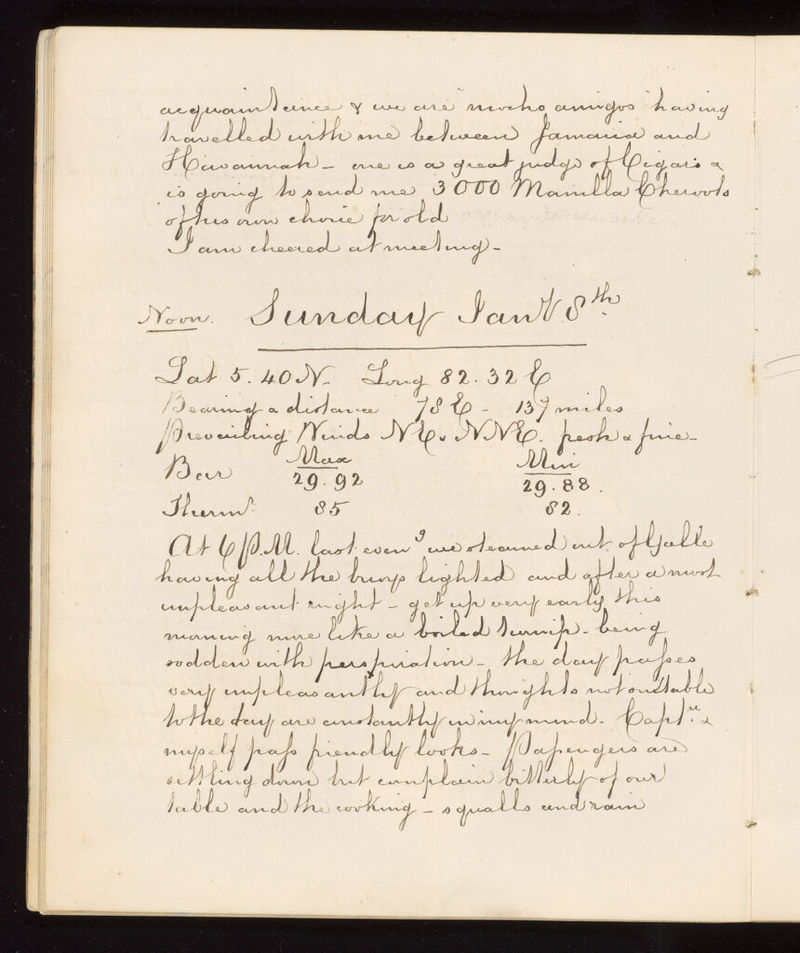 acquaintance & we are mucho amigos having
travelled with me between Jamaica and
Havannah - one is a great judge of Cigars &
is going to send me 3000 Manilla Cheroots
of his own choice for old
I am cheered at meeting -
Noon. Sunday Jany 8th
Lat 5.40 N. Long 82.32 E
Bearing & distance 78 E - 137 miles
Prevailing Winds NE & NNE. fresh & fine -
Max Min
Bar 29.92 29.88.
Thermr 85 82.
At 6 P.M. last eveng we steamed out of Galle
having all the buoys lighted and after a most
unpleasant night - get up very early this
morning more like a boiled turnip - being
sodden with perspiration - the day passes
very unpleasantly and thoughts not suitable
to the day are constantly in my mind. Captn &
myself pass friendly looks - Passengers are
settling down but complain bitterly of our
table and the cooking - squalls and rain